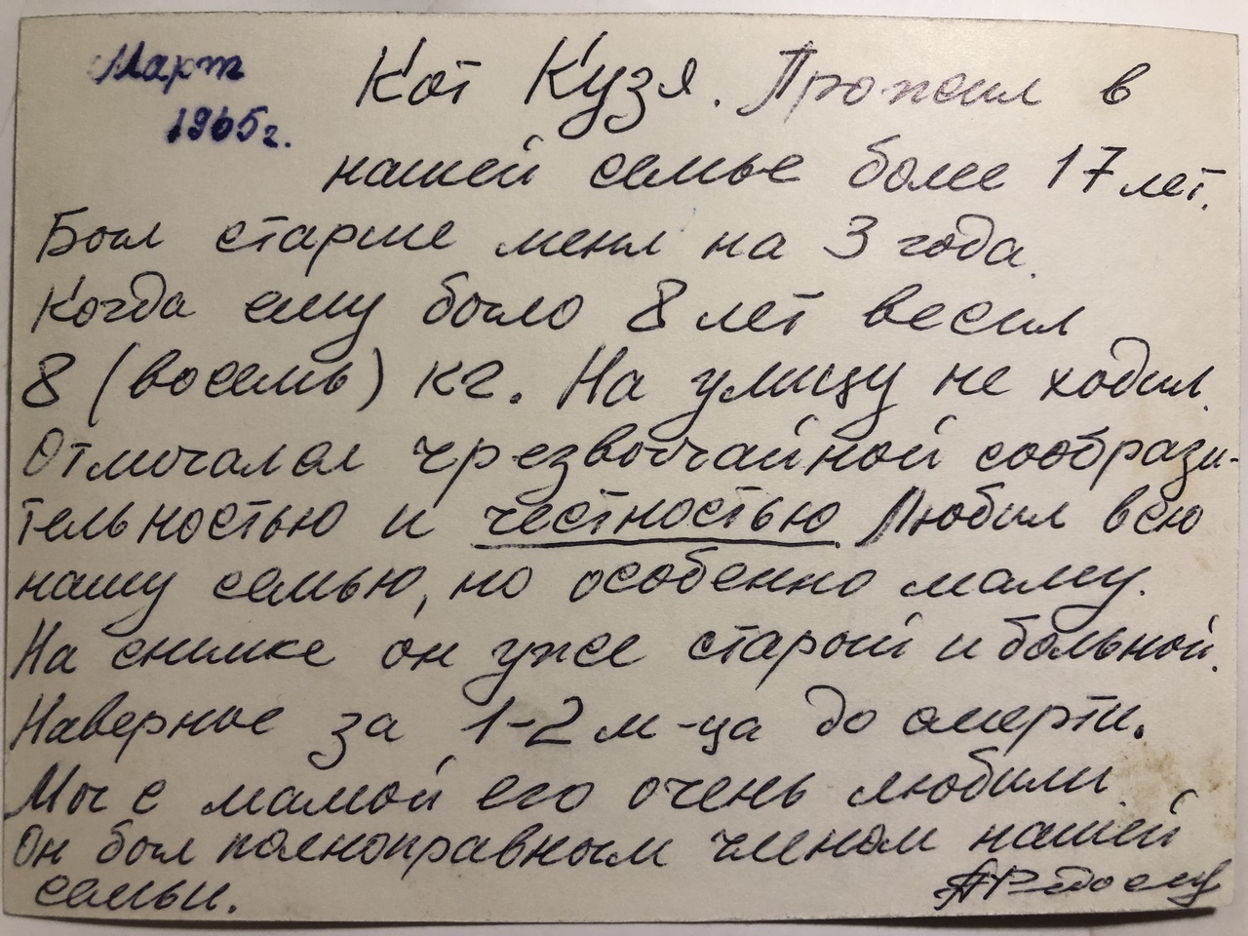 Март
1965г.
Кот Кузя. Прожил в
нашей семье более 17 лет.
Был старше меня на 3 года.
Когда ему было 8 лет весил
8 (восемь) кг. На улицу не ходил.
Отличался чрезвычайной сообрази-
тельностью и честностью. Любил всю
нашу семью, но особенно маму.
На снимке он уже старый и больной.
Наверное за 1-2 м-ца до смерти.
Мы с мамой его очень любили.
Он был полноправным членом нашей
семьи.